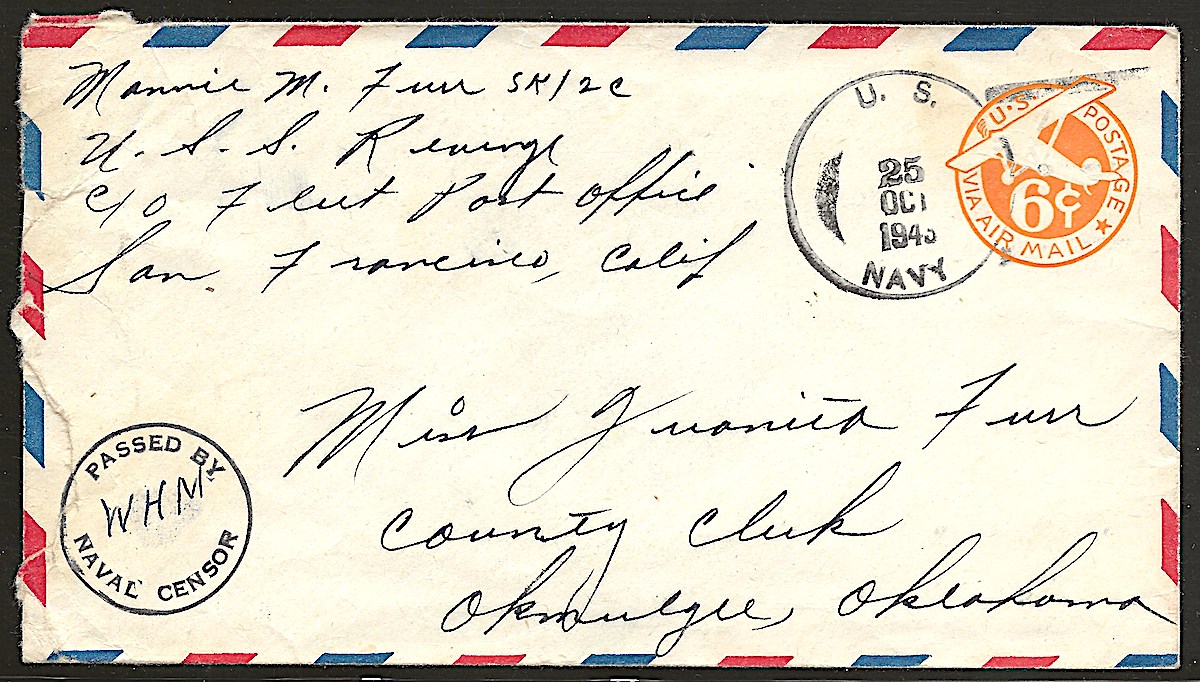 Mannie M. Furr SK/2C
U.S.S. Revenge
C/O Fleet Post Office
San Francisco, Calif
U. S.
25
OCT
NAVY
U.S. POSTAGE
6¢
VIA AIR MAIL
Miss Juanita Furr
County Clerk
Okmulgee, Oklahoma
PASSED BY
WHM
NAVAL CENSOR